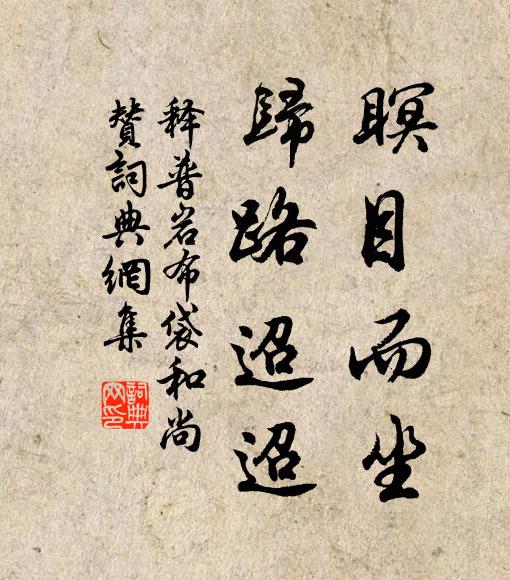 瞑目而坐
歸路迢迢
释普岩布袋和尚
赞詞典網集
詞典
网印